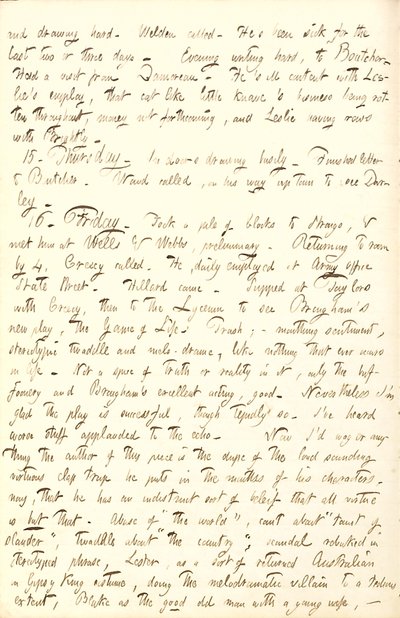 and drawing hard. Welden called. He's been sick for the
last two or three days. Evening writing hard, to Boutcher.
Had a visit from Damoreau. He's ill content with Les-
lie's employ, that cat like little knave's business being rot-
ten throughout, money not forthcoming, and Leslie having rows
with Brightly.
15. Thursday. In doors drawing busily. Finished letter
to Butcher. Waud called, on his way up town to see Dar-
ley.
16. Friday. Took a pile of blocks to Strongs, &
met him at Wells & Webbs, preliminary. Returning to room
by 4, Crecy called. He, daily employed at Army office
State Street. Hillard came. Supped at Taylors
with Crecy, then to the Lyceum to see Brougham's
new play, The Game of Life. Trash; mouthing sentiment,
stereotypic twaddle and melo-drame, like nothing that ever was
in life. Not a spice of truth or reality in it, only the buf-
foonery and Brougham's excellent acting, good. Nevertheless I'm
glad the play is successful, though tepidly so. I've heard
worse stuff applauded to the echo. Now I'd wager any-
thing the author of this piece is the dupe of the loud sounding
virtuous clap traps he puts in the mouths of his characters.
nay, that he has an indistinct sort of belief that all virtue
is but that. Abuse of "the world", cant about "trust of
slander", twaddle about "the country", scandal rebuked in
stereotyped phrase, Lester, as a sort of returned Australian
in Gipsy King costume, doing the melodramatic villain to a
extent, Blake as the good old man with a young wife,